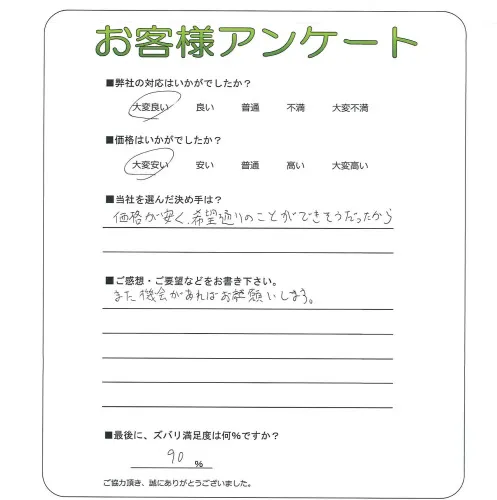 お客様アンケート
■弊社の対応はいかがでしたか？
大変良い 良い 普通 不満 大変不満
■価格はいかがでしたか？
大変安い 安い 普通 高い 大変高い
■当社を選んだ決め手は？
価格が安く、希望通りのことができそうだったから
■ご感想・ご要望などをお書き下さい。
また機会があればお願いします。
■最後に、ズバリ満足度は何%ですか？
90 %
ご協力頂き、誠にありがとうございました。